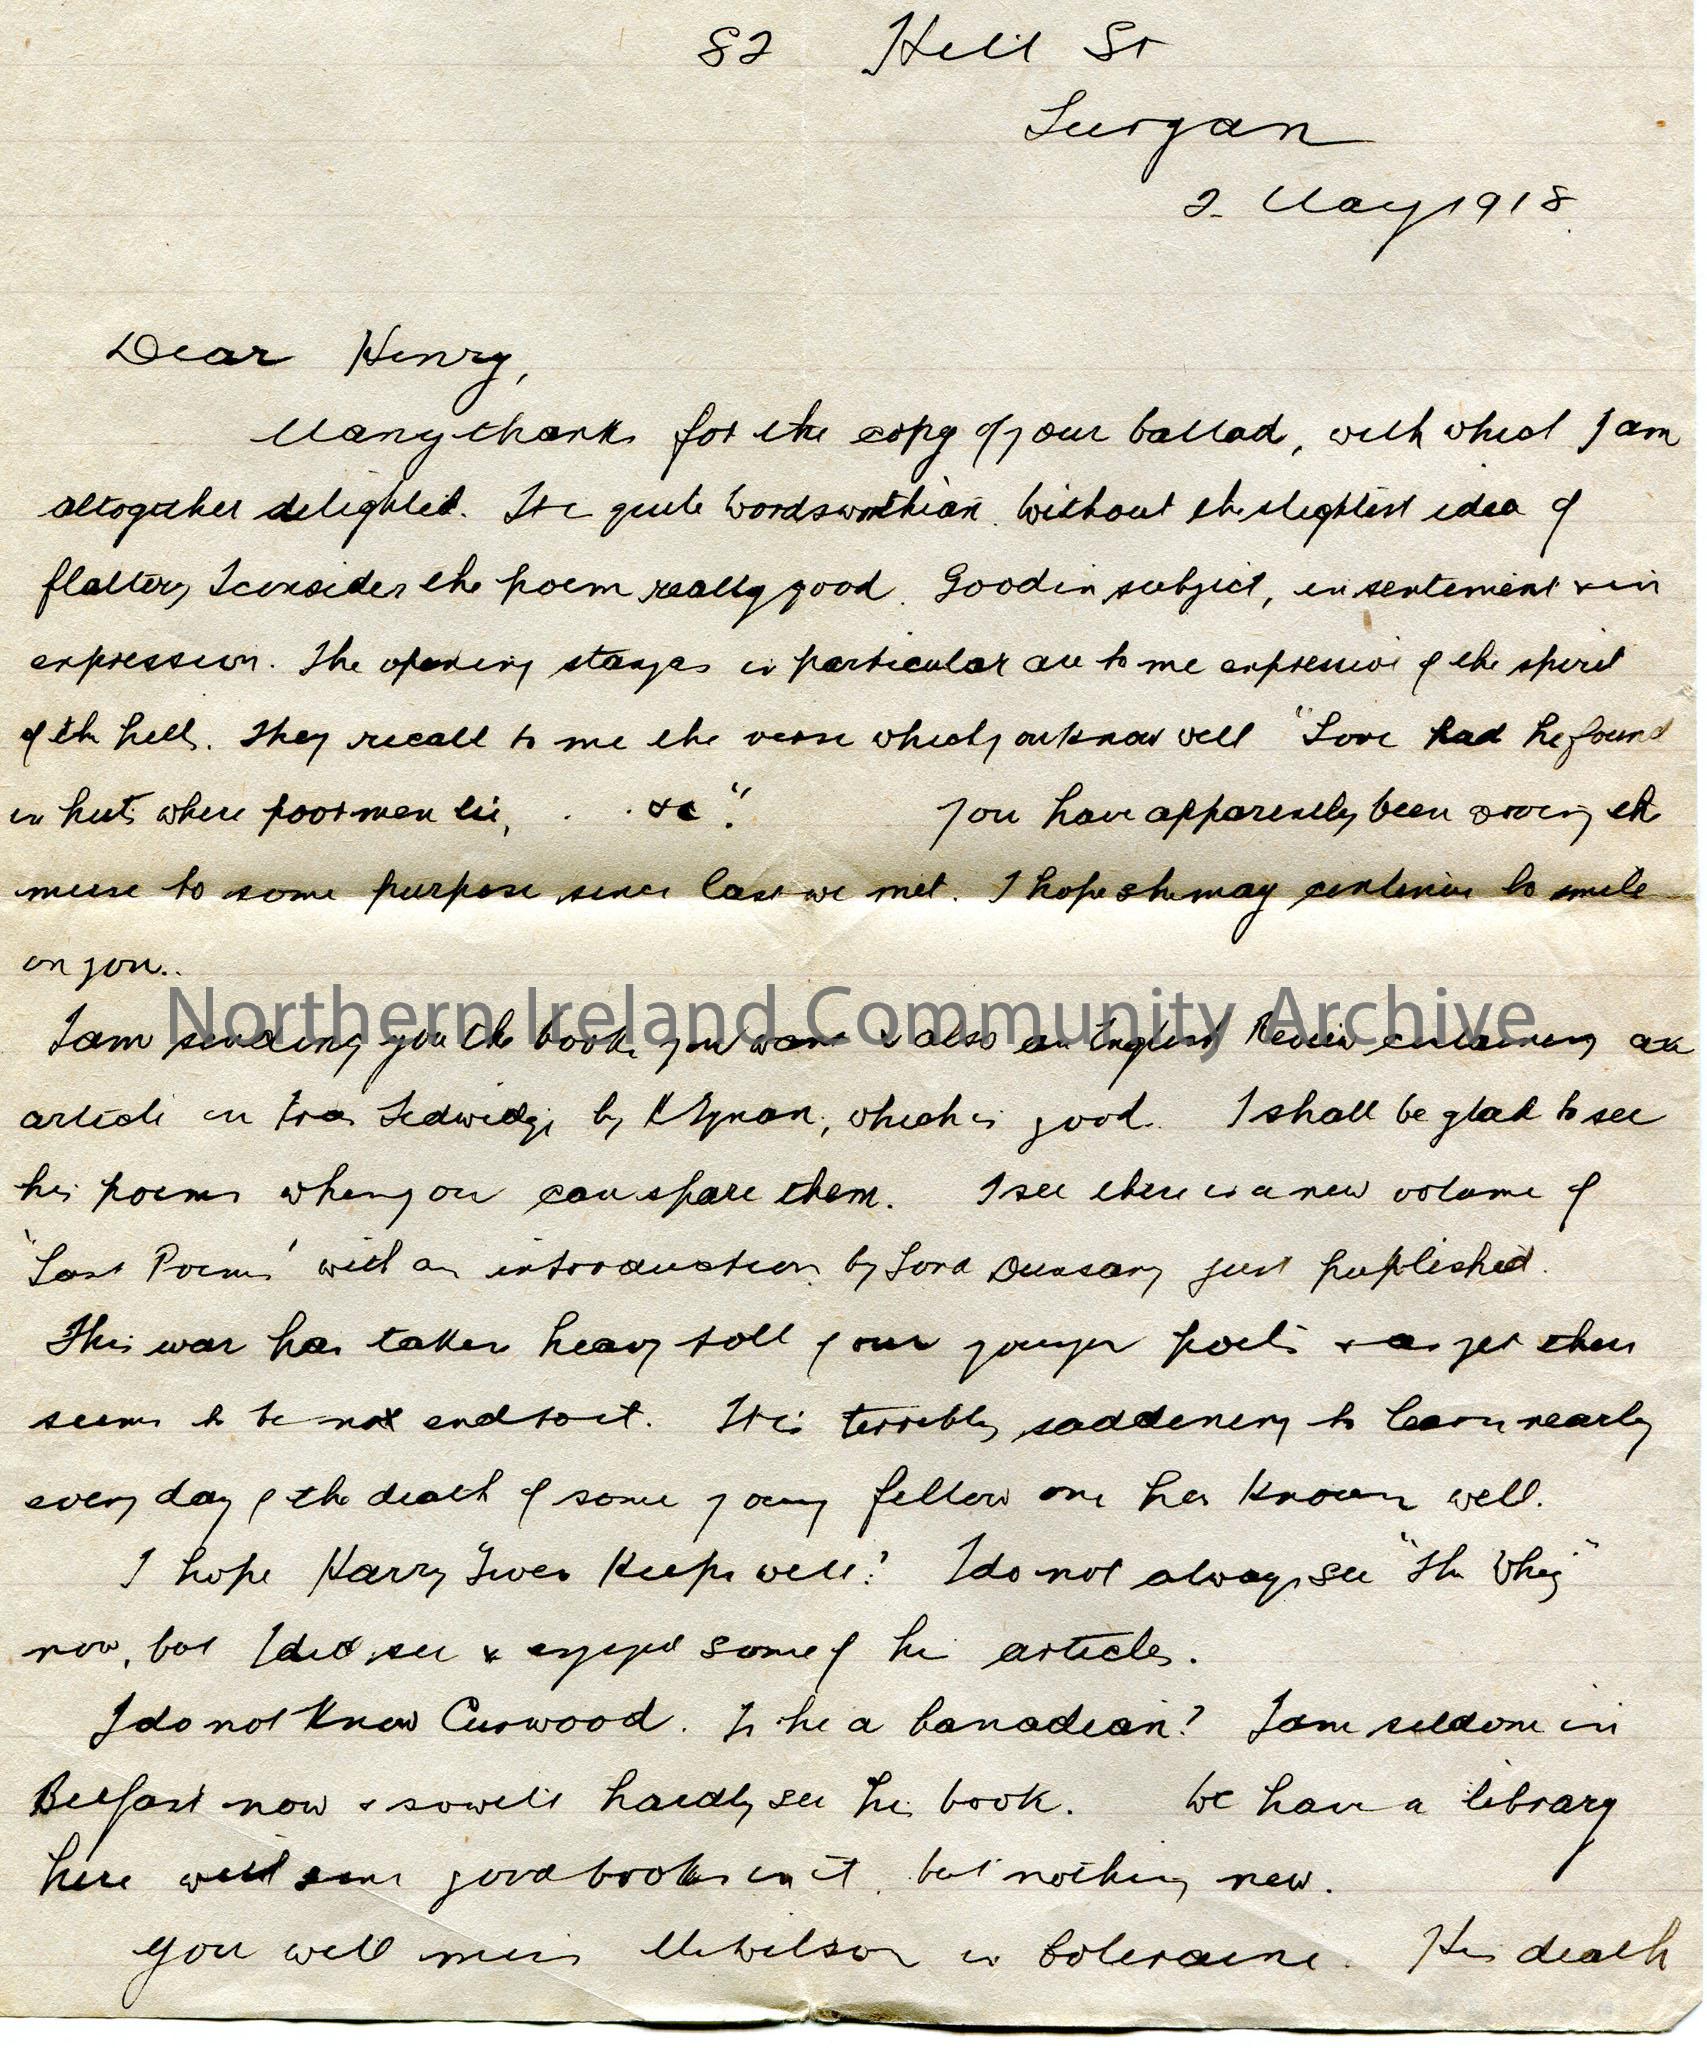 82 Hill St
Lurgan
2 May 1918.
Dear Henry,
Many thanks for the copy of your ballad, with which I am
altogether delighted. It is quite Wordsworthian. Without the slightest idea of
flattery I consider the poem really good. Good in subject, in sentiment & in
expression. The opening stanzas in particular are to me expressive of the spirit
of the hills. They recall to me the verse which you know well "Love had he found
in huts where poor men lie, . . &c".  You have apparently been wooing the
muse to some purpose since last we met. I hope she may continue to smile
on you..
Northern Ireland Community Archive
I am sending you the books you want & also an English Review containing an
article on Fras Ledwidge by K Tynan, which is good. I shall be glad to see
his poems when you can spare them. I see there is a new volume of
'Last Poems' with an introduction by Lord Dunsany just puplished.
This war has taken heavy toll of our younger poets & as yet there
seems to be not end to it. It is terribly saddening to learn nearly
every day of the death of some young fellow one has known well.
I hope Harry keeps well? I do not always see "The Whig"
now, but I did see & enjoyed some of his articles.
I do not know Curwood. Is he a Canadian? I am seldom in
Belfast now & so will hardly see his book. We have a library
here with some good books in it, but nothing new.
You will miss Mr Wilson in Coleraine. His death